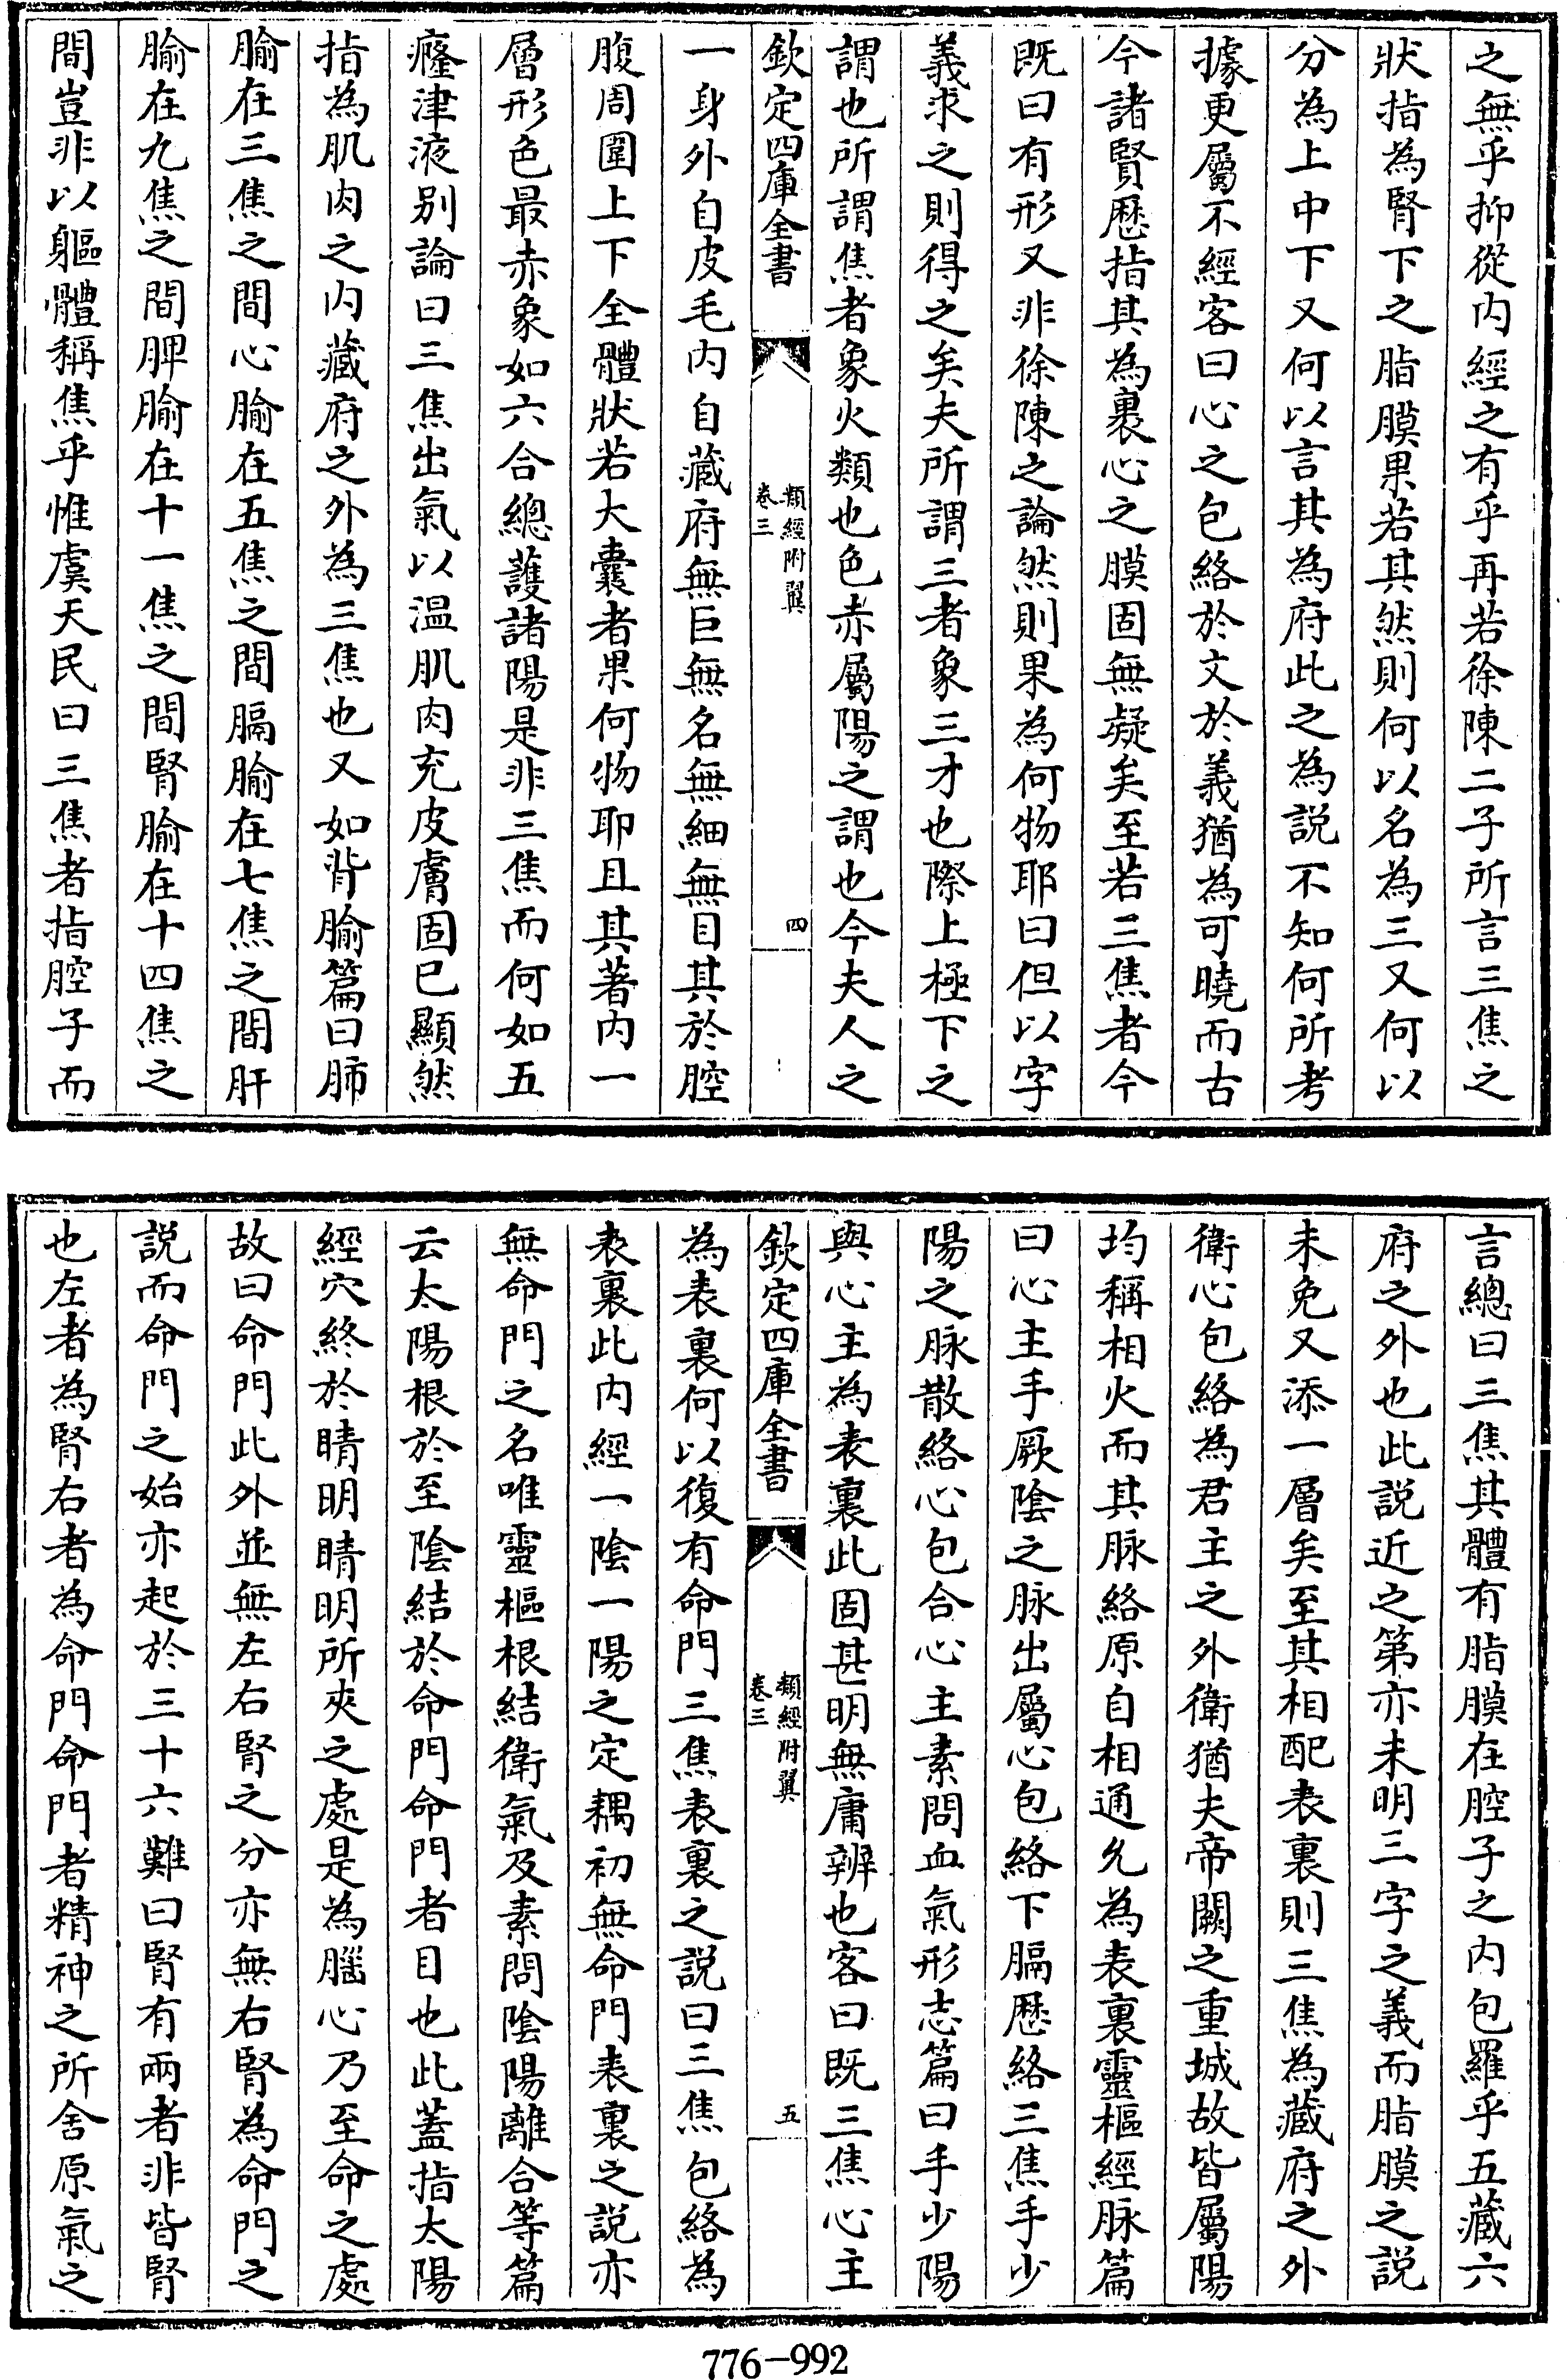 之無乎抑從内經之有乎再若徐陳二子所言三焦之
狀指為腎下之脂膜果若其然則何以名為三又何以
分為上中下又何以言其為府此之為説不知何所考
據更屬不經客曰心之包絡於文於義猶為可曉而古
今諸賢歴指其為裹心之膜固無疑矣至若三焦者今
既曰有形又非徐陳之論然則果為何物耶曰但以字
義求之則得之矣夫所謂三者象三才也際上極下之
謂也所謂焦者象火類也色赤屬陽之謂也今夫人之
欽定四庫全書
類經附翼
卷三
四
一身外自皮毛内自藏府無巨無名無細無目其於腔
腹周圍上下全體狀若大囊者果何物耶且其著内一
層形色最赤象如六合總護諸陽是非三焦而何如五
癃津液别論曰三焦出氣以温肌肉充皮膚固已顯然
指為肌肉之内藏府之外為三焦也又如背腧篇曰肺
腧在三焦之間心腧在五焦之間膈腧在七焦之間肝
腧在九焦之間脾腧在十一焦之間腎腧在十四焦之
間豈非以軀體稱焦乎惟虞天民曰三焦者指腔子而
言總曰三焦其體有脂膜在腔子之内包羅乎五藏六
府之外也此説近之第亦未明三字之義而脂膜之説
未免又添一層矣至其相配表裏則三焦為藏府之外
衛心包絡為君主之外衛猶夫帝闕之重城故皆屬陽
均稱相火而其脉絡原自相通允為表裏靈樞經脉篇
曰心主手厥隂之脉出屬心包絡下膈歴絡三焦手少
陽之脉散絡心包合心主素問血氣形志篇曰手少陽
與心主為表裏此固甚明無庸辨也客曰既三焦心主
欽定四庫全書
類經附翼
卷三
五
為表裏何以復有命門三焦表裏之説曰三焦包絡為
表裏此内經一隂一陽之定耦初無命門表裏之説亦
無命門之名唯靈樞根結衛氣及素問隂陽離合等篇
云太陽根於至隂結於命門命門者目也此蓋指太陽
經穴終於睛明睛明所夾之處是為腦心乃至命之處
故曰命門此外並無左右腎之分亦無右腎為命門之
説而命門之始亦起於三十六難曰腎有兩者非皆腎
也左者為腎右者為命門命門者精神之所舍原氣之
776-992